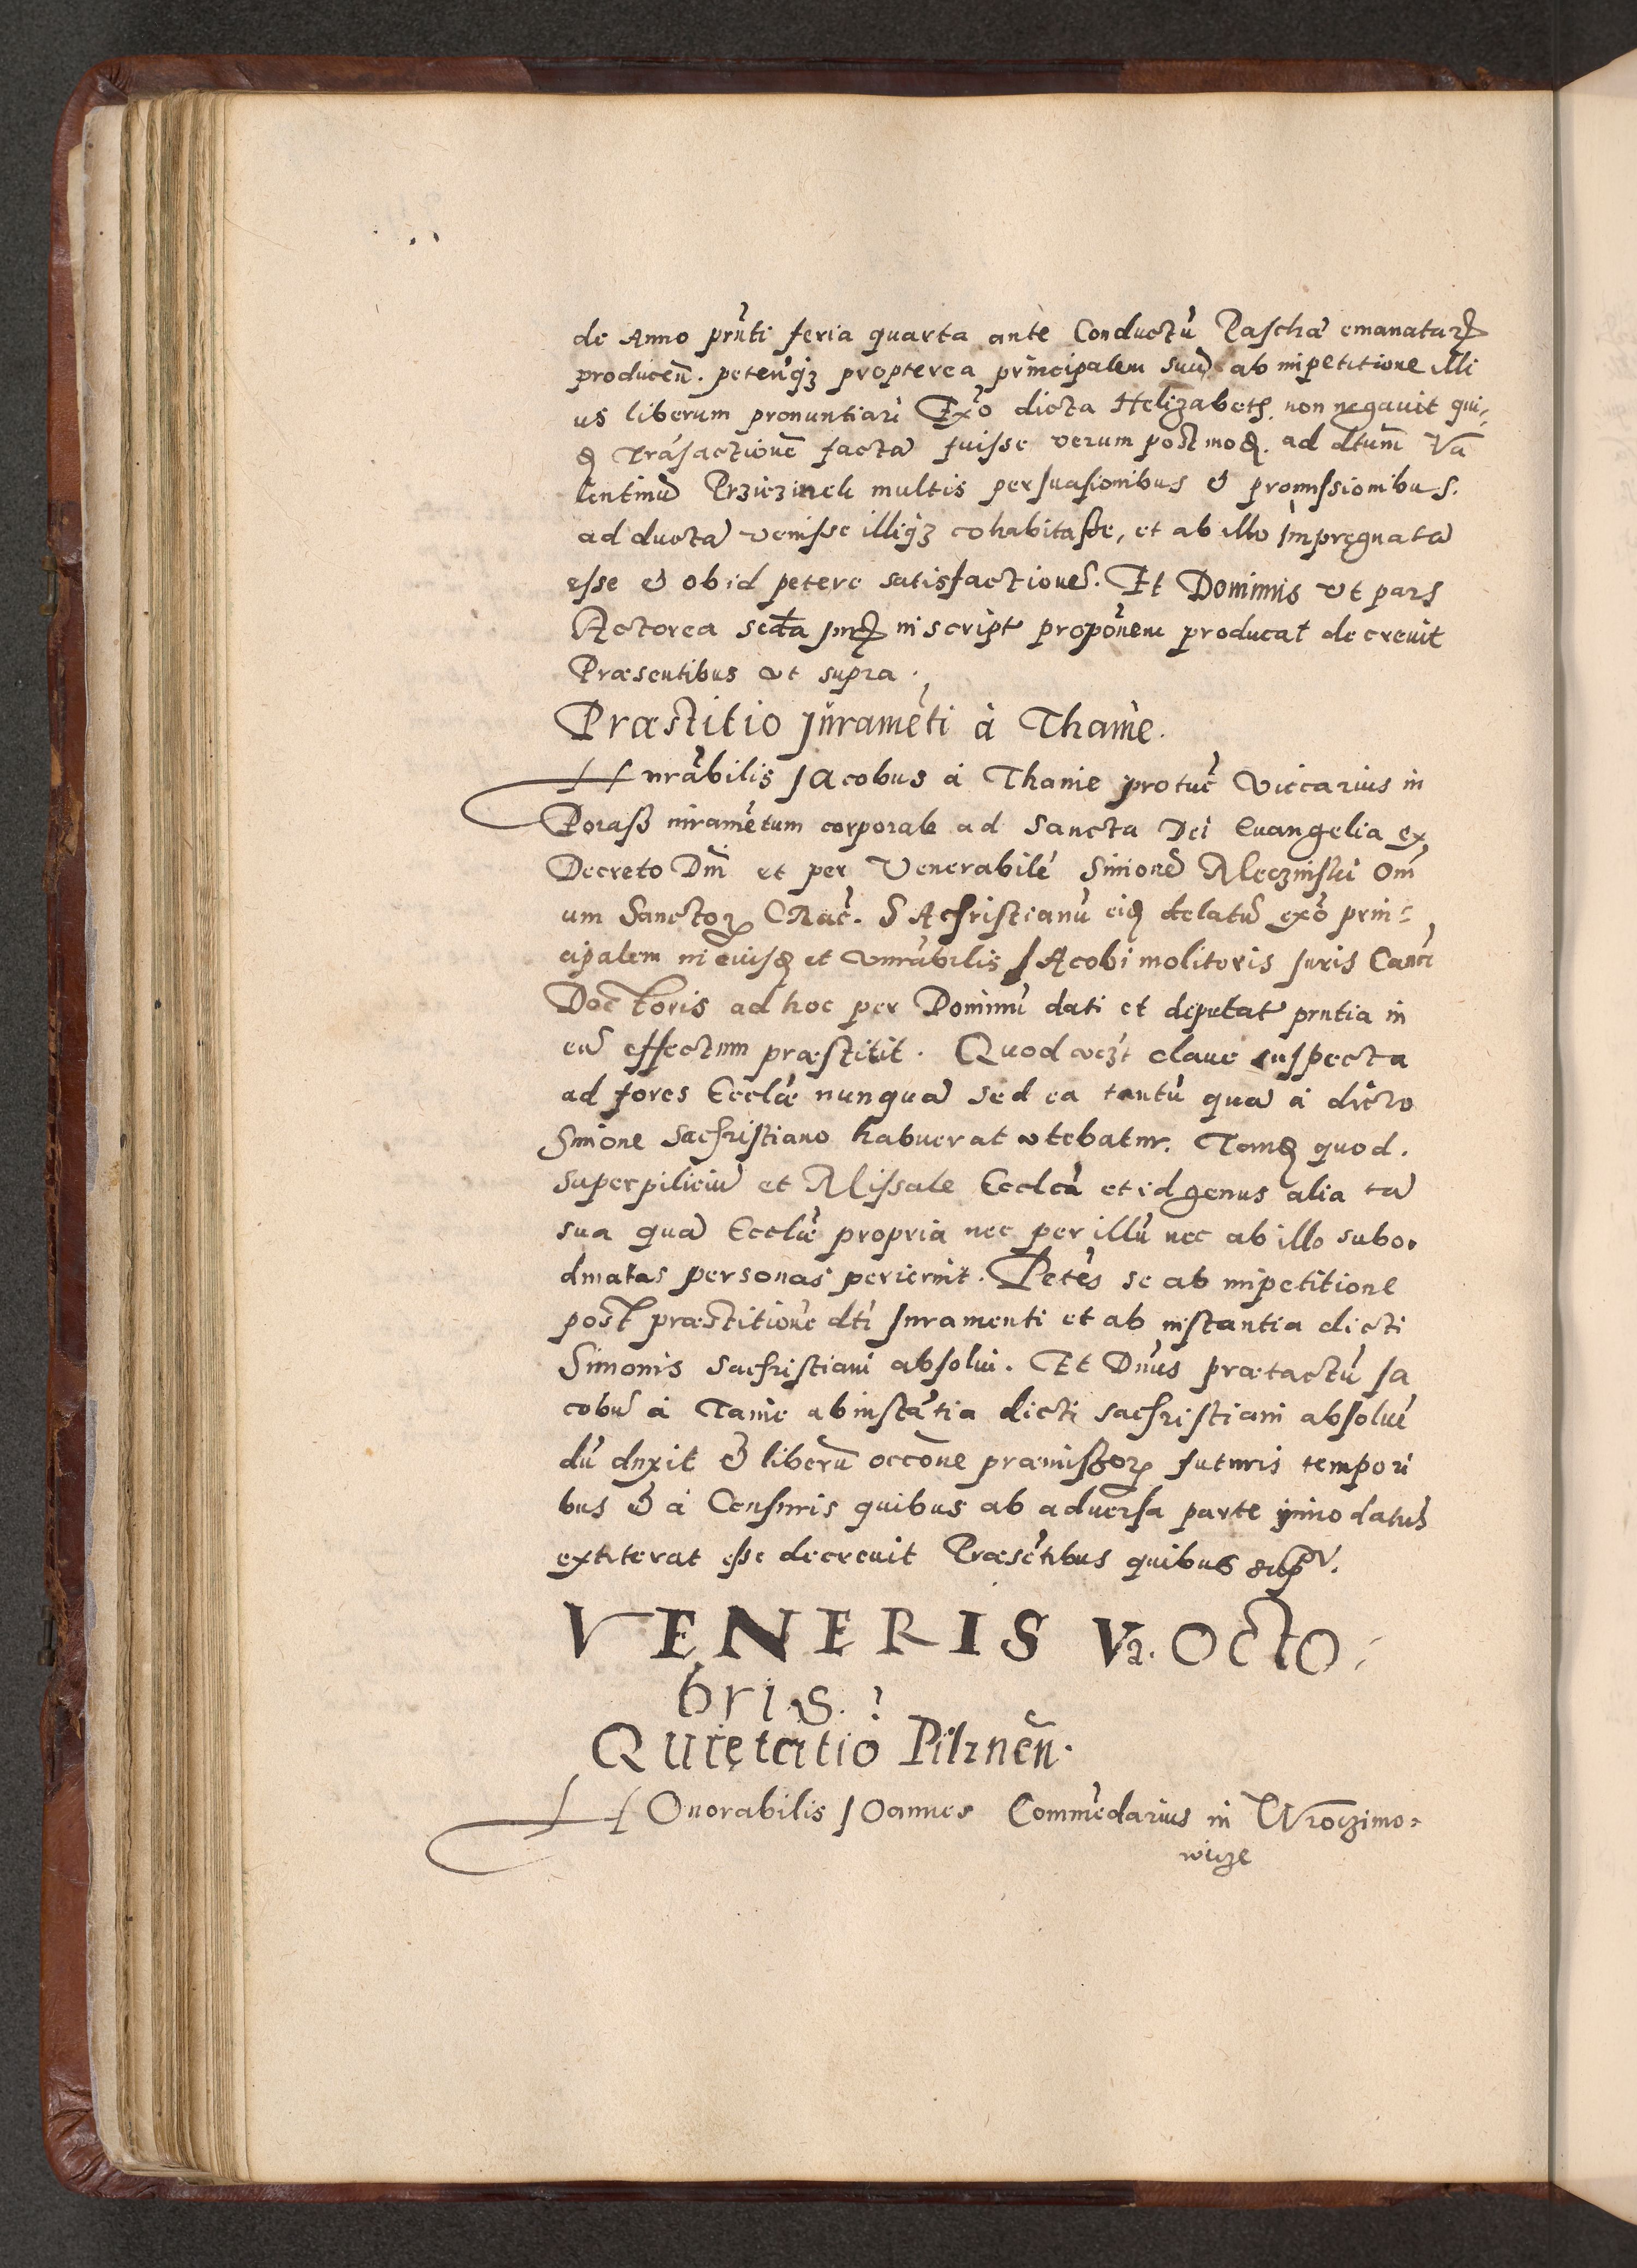 de Anno prñti feria quarta ante Conductũ Paschæ emanatar
producen̄. peten̄qꝫ propterea principalem suũ ab impetitione illi
us liberum pronuntiari Exo dicta Helizabeth. non negavit qui,
Trãsactionẽ factã fuisse verum postmo. ad dtum Va
lentinũ Prziezinek multis persuasionibus & promissionibus.
ad ductã venisse illiqꝫ cohabitasse, et ab illo impręgnatã
esse & ob id petere satisfactionẽ. Et Dominus vt pars
Actorea script proponem producat decrevit
Præsentibus vt supra.
Præstitio Juramẽti à Thame.
Hnrãbilis Jacobus à Thanie protũc Viccarius in
Poraß iuramẽtum corporale ad Sancta Dei Euangelia ex
Decreto Dn̄i et per Venerabilẽ Simonẽ Mleczinski Om̃
um Sanctoꝝ CRac̃. SAchristianũ delatũ exõ prin:
cipalem et vnrãbilis JAcobi molitoris Juris Can̄ci
Doctoris ad hoc per Dominũ dati et deputat prntia in
eũ effectum præstitit. Quod clave suspecta
ad fores Ecclæ̃ nunquã sed ea tantũ quã à dicto
Simione Sachristiano habuerat vtebatur. quod.
superpiliciũ et Missale Ecclẽa et id genus alia tã
sua quã Ecclæ̃ propria nec per illũ nec ab illo subo.
dinatas personas perierint. Petẽs se ab impetitione
post præstitionẽ dti Juramenti et ab instantia dicti
Simonis Sachristiani absolui. Et Dñus prætactũ Ja
cobũ à Tanie ab instãtia dicti sachristiani absoluẽ
dũ duxit & liberũ occone præmissoꝝ futuris tempori
bus & à Censuris quibus ab adversa parte innodatus
extiterat esse decrevit Præsẽtibus quibus sup.
VENERIS Va. OCTO,
bris.
Quietatio Pilznen̄.
HOnorabilis JOannes Commẽdarius in Wroczimo,
wicze